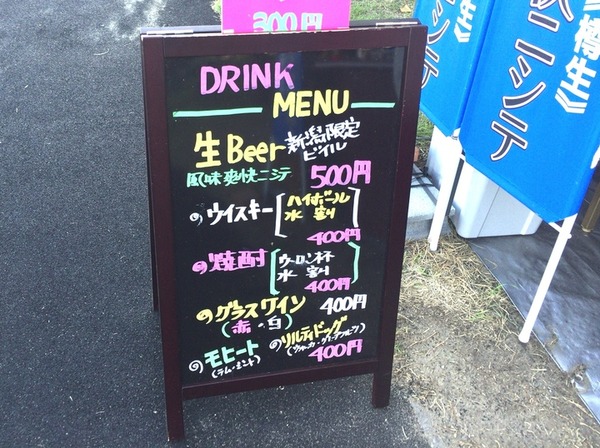 300円
DRINK
MENU
生Beer 新潟限定
ビイル
風味爽快ニシテ 500円
のウイスキー ハイボール
水割
400円
の焼酎 ウーロン杯
水割
400円
のグラスワイン 400円
(赤・白)
のモヒート のソルティドッグ
(ラム・ミント)
400円
樽生
ニシテ
ニシテ